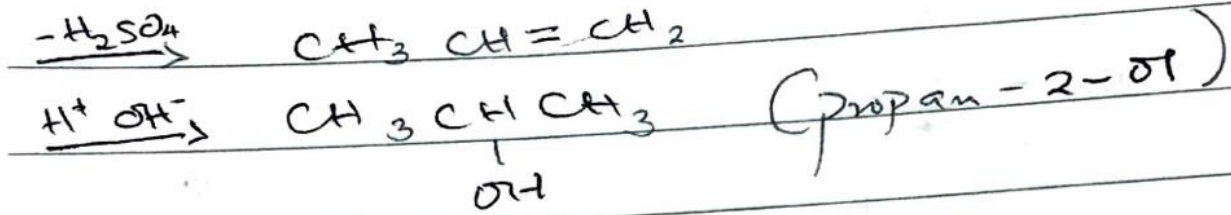 -H2SO4 → CH3 CH = CH2
H+ OH- → CH3 CH CH3 (propan-2-ol)
|
OH